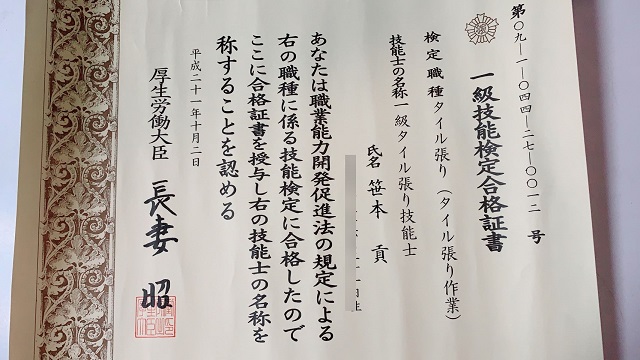 第〇九—一—〇四四—二七—〇〇一二号
一級技能検定合格証書
検定職種タイル張り（タイル張り作業）
技能士の名称一級タイル張り技能士
氏名 笹本 貢
あなたは職業能力開発促進法の規定による
右の職種に係る技能検定に合格したので
ここに合格証書を授与し右の技能士の名称を
称することを認める
平成二十一年十月二日
厚生労働大臣 長妻 昭